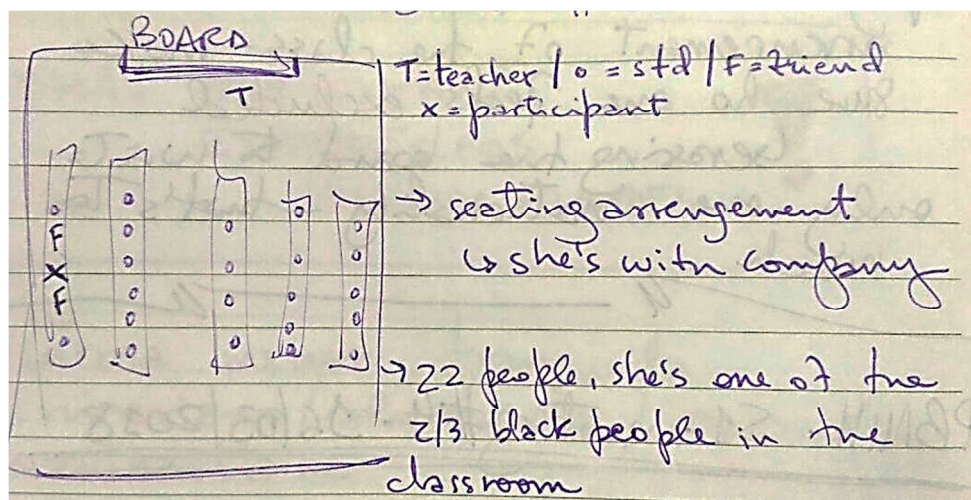 BOARD
T
T=teacher / o = std / F = friend
x = participant
F
X
F
→ seating arrengement
↳ she's with company
→ 22 people, she's one of the
2/3 black people in the
classroom